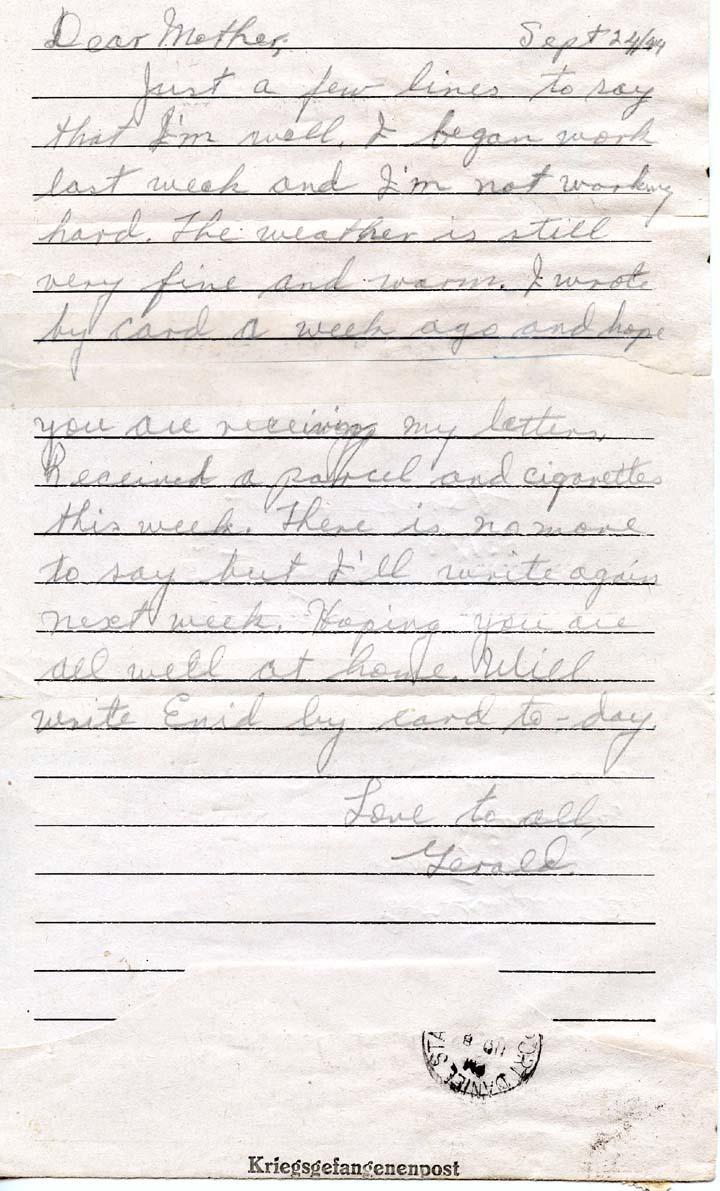 Dear Mother, Sept 24/44
Just a few lines to say
that I'm well. I began work
last week and I'm not working
hard. The weather is still
very fine and warm. I wrote
by card a week ago and hope
you are receiving my letters.
Received a parcel and cigarettes
this week. There is no more
to say but I'll write again
next week. Hoping you are
all well at home. Will
write Enid by card to-day.
Love to all,
Gerald.
PORT DANIEL STA
Kriegsgefangenenpost